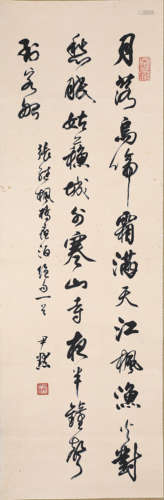 月落烏啼霜滿天江楓漁火對
愁眠姑蘇城外寒山寺夜半鐘聲
到客船
張繼楓橋夜泊絕句一首
尹默